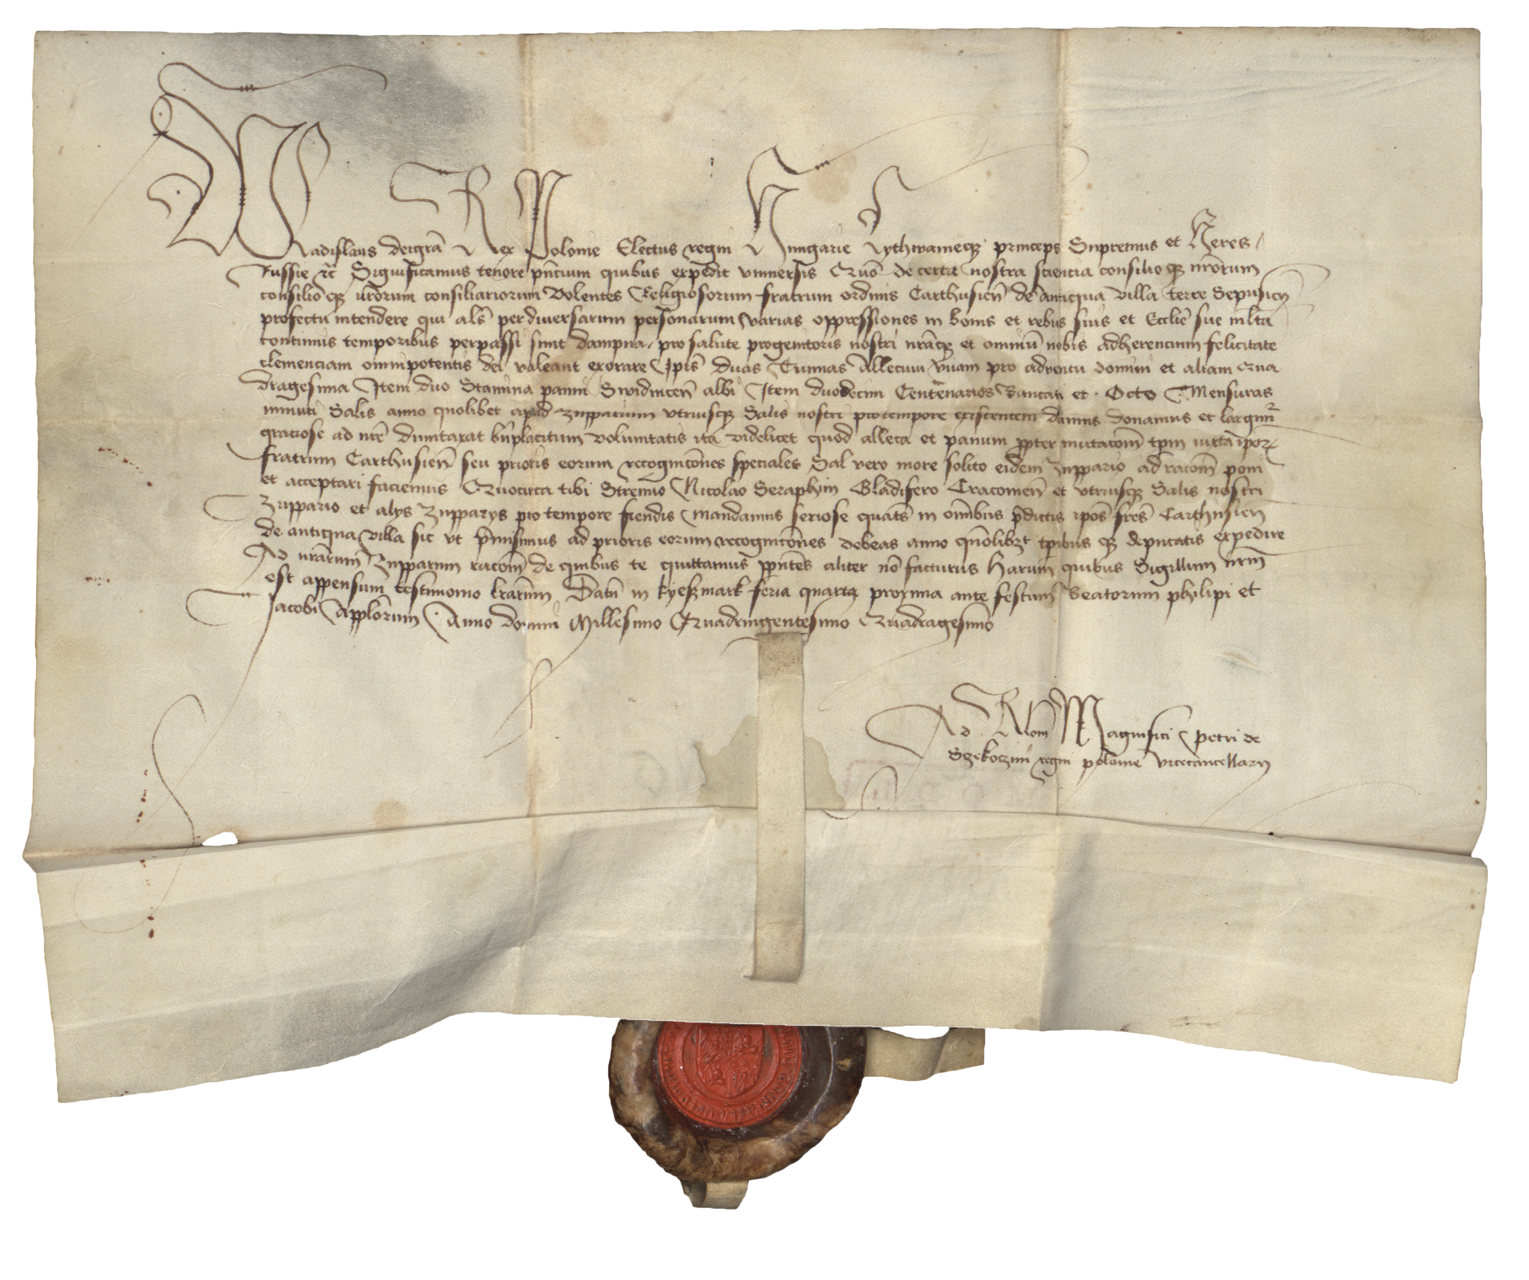 Wladislaus deigra Rex Polonie Electus regni Hungarie Lythwanieqz princeps Supremus et Heres
Russie rc Significamus tenore pntium quibus expedit vniuersis Quo de certa nostra scientia consilio qz nrorum
consilio eqz vrorum consiliariorum Volentes Religiosorum fratrum ordinis Carthusien de antiqua villa terre Sepusien
profectu intendere qui als per diuersarum personarum varias oppressiones in bonis et rebus suis et Ecclie sue mlta
continuis temporibus perpassi sunt dampna pro salute progenitoris nostri nraqz et omniu nobis adherencium felicitate
clemenciam omnipotentis dei valeant exorare Ipis duas Tunnas Allecum vnam pro aduentu domini et aliam Qua
dragesima Item duo Stamina panni Swidnicen albi Item duodecim Centenarios Bancati et Octo Mensuras
minuti Salis anno quolibet apud zupparium vtriusqz Salis nostri protempore existentem damus donamus et largimr
graciose ad nre dumtaxat bnplacitum voluntatis ita videlicet quod alleca et panum ppter mutacom tpm iuxta ipor
fratrum Carthusien seu prioris eorum recognicones speciales Sal vero more solito eidem zuppario ad racom poni
et acceptari faciemus Quocirca tibi Strenuo Nicolao Seraphyn Gladifero Cracouien et vtriusqz Salis nostri
zuppario et alys zupparys pro tempore fiendis mandamus seriose quats in omibus pdictis ipos fres Carthusien
de antiqua villa sic vt pmisimus ad prioris eorum recognicones debeas anno quolibzt tpibus qz deputatis expedire
Ad nrarum zupparum racom de quibus te quittamus pntes aliter no facturus Harum quibus Sigillum nrm
est appensum testimonio lrarum Datu in kyeszmark feria quarta proxima ante festum Beatorum phylipi et
Jacobi Applorum Anno domini Millesimo Quadringentesimo Quadragesimo
Ad Rlom Magnifici petri de
Szekoczini regni polonie vicecancellary